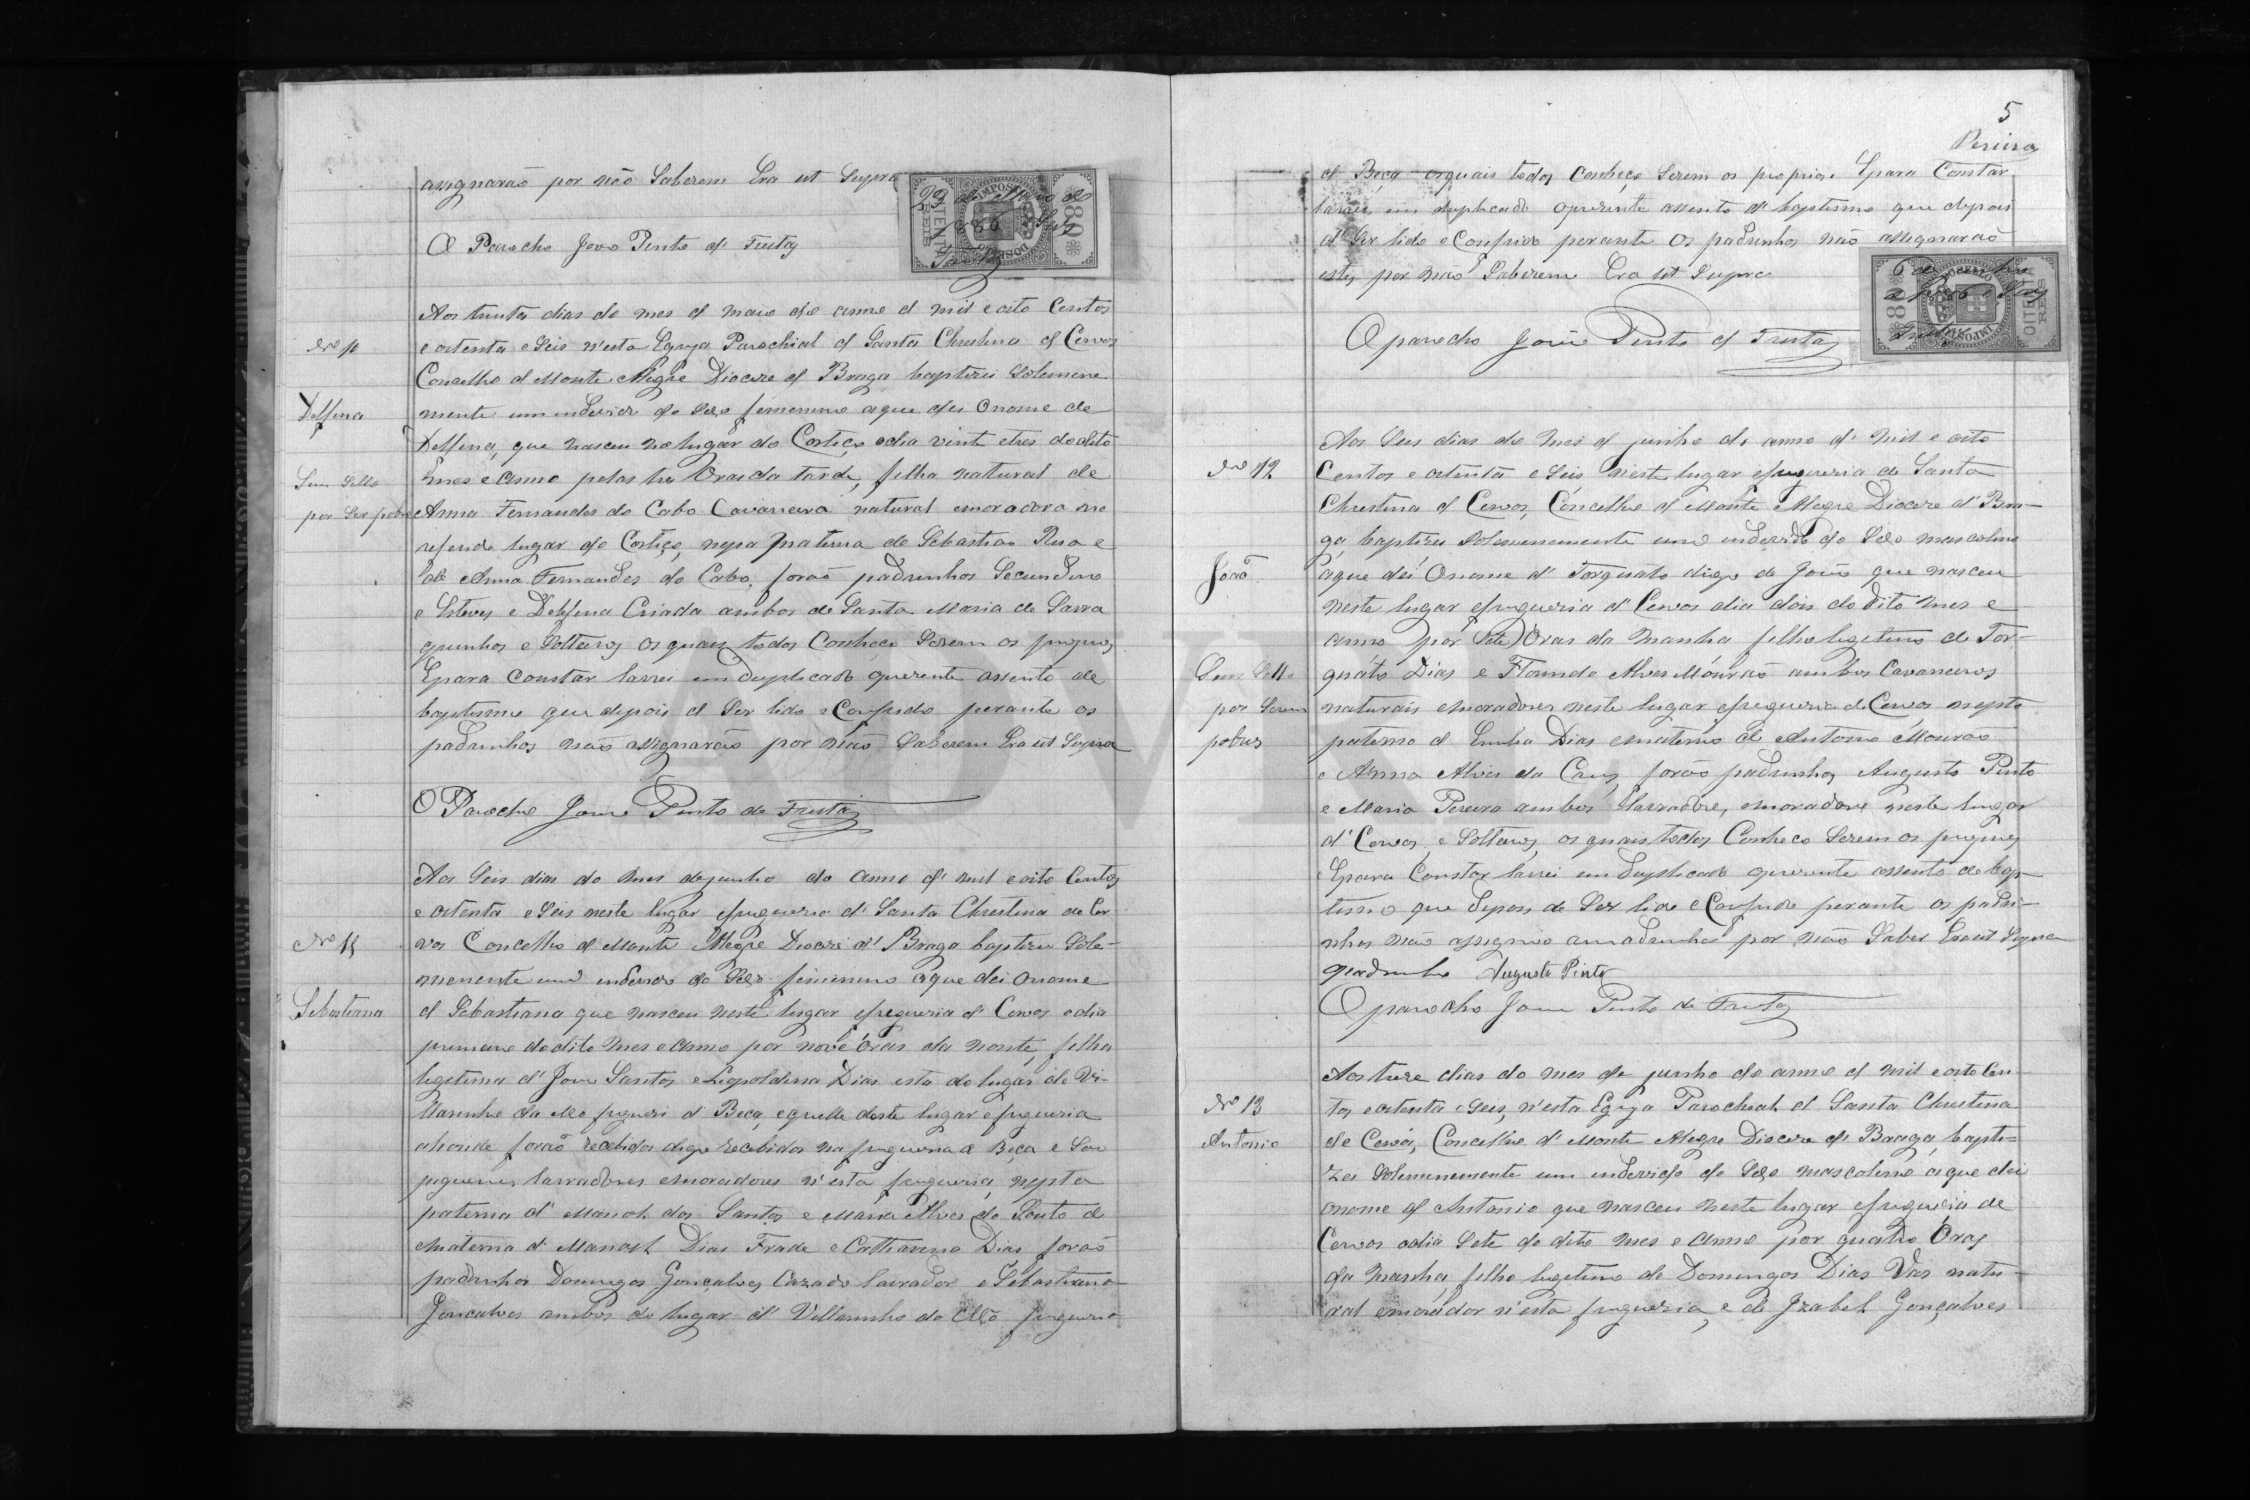 assignaraõ por não Saberem Era ut Supra
29 de Maio de
1886
O Parocho Joõo Pinto de Freitas
Aos trinta dias do mes d maio do anno d mil e oito Centos
Nº 10
e oitenta e Seis n'esta Egreja Parochial d Santa Christina d Cervos
Concelho d Monte Alegre Diocese d Braga baptizei Solemne
Delfina
mente um individo do Sexo femenino aque dei O nome de
Delfina, que nasceu no lugar do Cortiço odia vinte etres do dito
Sem Sello
mes e anno pelas tres Oras da tarde, filha natural de
por Ser pobre
Anna Fernandes do Cabo Cavaneira natural emoradora no
referido lugar do Cortiço, nepta materna de Sebastiao Rua e
de Anna Fernandes do Cabo, foraõ padrinhos Secundino
e Esteves e Delfina Criada ambos de Santa Maria de Sarra
quinhos e Solteiros os quais todos Conheço Serem os proprios,
Epara Constar lavrei em duplicado oprezente assento de
baptismo que depois d Ser lido e Conferido perante os
padrinhos naõ assignaraõ por naõ Saberem Era ut Supra
O Parocho João Pinto de Freitas
Aos Seis dias do mes dejunho do anno d' mil e oito Centos
e oitenta e Seis neste lugar efregueria d' Santa Christina de Cer
Nº 11
vos Concelho d Monte Alegre Diocese d' Braga baptizei Sole-
menente um individo do Sexo femenino aque dei onome
Sebastiana
d Sebastiana que nasceu neste lugar efregueria d' Cervos odia
primeiro dodito mes e anno por nove oras da noute, filha
legitima d' João Santos e Leopoldina Dias esta do lugar de Vi-
llarinho da Mó fregueri d' Beça, equelle deste lugar efregueria
ahonde foraõ recebidos digo recebidos na fregueria d Beça e Sou
pequenos lavradores emoradores n'esta fregueria, nepta
paterna d' Manoel dos Santos e Maria Alves do Souto e
materna d' Manoel Dias Frade e Catharina Dias foraõ
padrinhos Domingos Gonçalves Cazado lavrador e Sebastiana
Goncalves ambos do lugar d' Villarinho da Mó fregueria
5
Pereira
d Beça osquais todos Conheço Serem os proprios Epara Constar
lavrei em duplicado oprezente assento d' baptismo que depois
d' Ser lido e Conferido perante Os padrinhos naõ assignaraõ
estes por naõ Saberem Era ut Supra
6 de Junho
Freitas
O parocho João Pinto d Freitas
Aos Seis dias do Mes d junho do anno d' Mil e oito
Nº 12
Centos e oitenta e Seis neste lugar efregueria de Santa
Christina d Cervos, Concelho d Monte Alegre Diocese d' Bra-
ga, baptizei Solemnemente um individo do Sexo mascolino
João
aque dei Onome d' Torquato digo de João que nasceu
neste lugar efregueria d' Cervos dia dois do dito mes e
anno por Sete Oras da manha filho legitimo de Tor-
Sem Sello
quato Dias e Florinda Alves Mouraõ ambos Cavaneiros
por Serem
naturais emoradores neste lugar efregueria d Cervos nepto
pobres
paterno d Emilia Dias ematerno de Antonio Mourao
e Anna Alves da Cruz, foraõ padrinhos Augusto Pinto
e Maria Pereira ambos lavradores, emoradores neste lugar
d' Cervos, e Solteiros, os quais todos Conheco Serem os proprios
Epara Constar lavrei em duplicado oprezente assento de bap-
tismo que depois de Ser lido e Conferido perante os padri-
nhos naõ assignou amadrinha por naõ Saber Era ut Supra
Opadrinho Augusto Pinto
O parocho João Pinto de Freitas
Aos treze dias do mes de junho do anno d mil eoito Cen-
Nº 13
tos eoitenta e Seis, n'esta Egreja Parochial d Santa Christina
Antonio
de Cervos, Concelho d' Monte Alegre Diocese de Braga, bapti-
zei Solemnemente um individo do Sexo mascolino aque dei
onome d Antonio que nasceu neste lugar efregueria de
Cervos odia Sete do dito mes e anno por quatro Oras
da Manha filho legitimo de Domingos Dias Vas natu-
ral emorador n'esta fregueria, e de Izabel Gonçalves